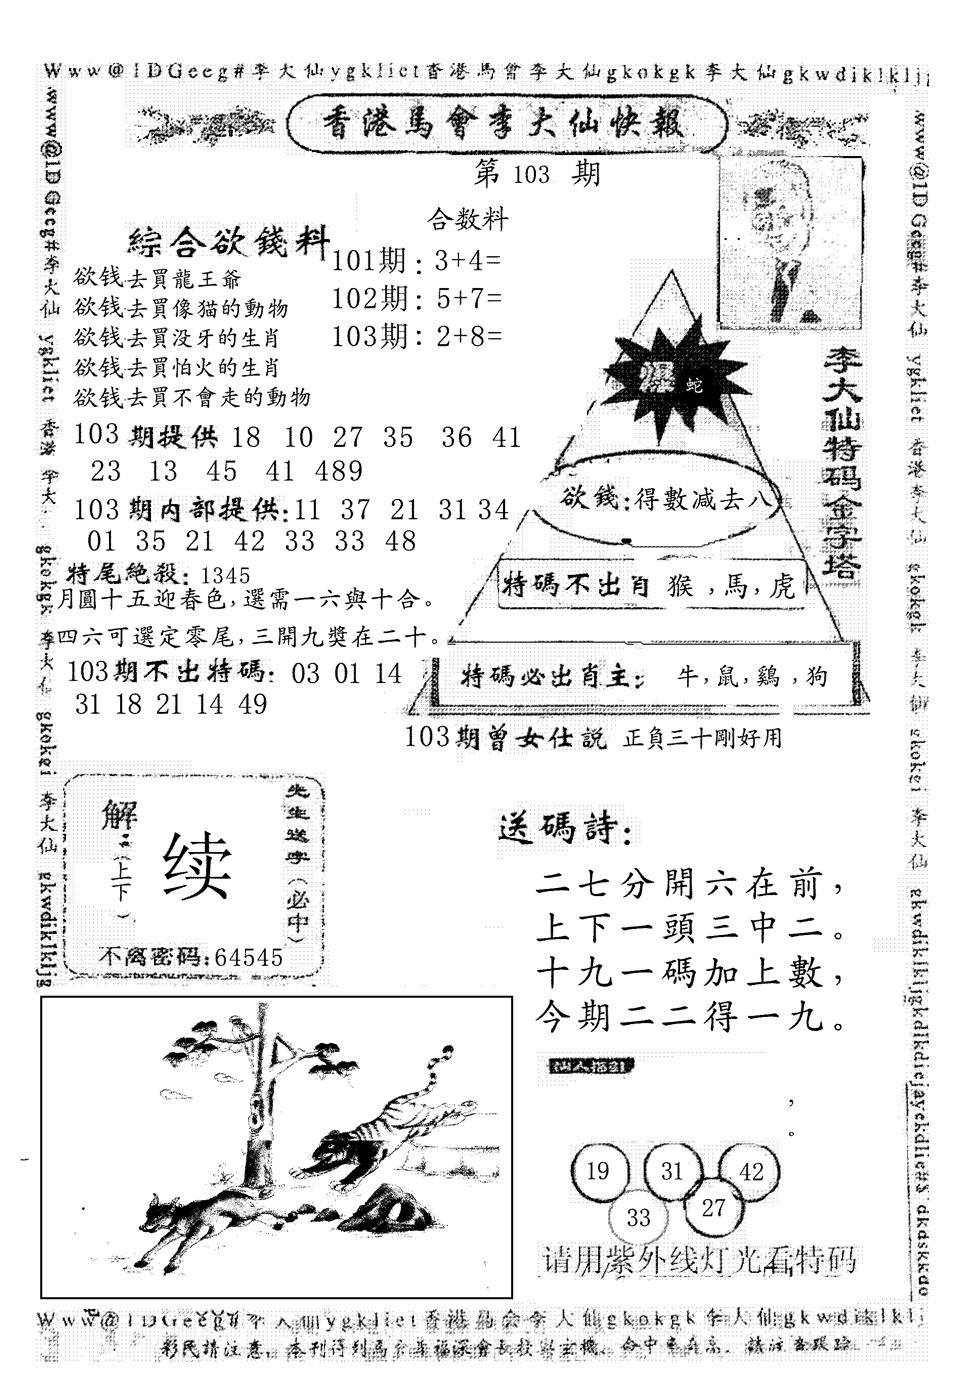 Www@1DGecg#李大仙ygklict香港馬會李大仙gkokgk李大仙gkwdiklkljg
香港馬會李大仙快報
第 103 期
合数料
101期: 3+4=
102期: 5+7=
103期: 2+8=
綜合欲錢料
欲钱去買龍王爺
欲钱去買像猫的動物
欲钱去買没牙的生肖
欲钱去買怕火的生肖
欲钱去買不會走的動物
103 期提供 18 10 27 35 36 41
23 13 45 41 489
103 期内部提供:11 37 21 31 34
01 35 21 42 33 33 48
特尾絶殺: 1345
月圓十五迎春色,選需一六與十合。
四六可選定零尾,三開九獎在二十。
103期不出特碼: 03 01 14
31 18 21 14 49
李大仙特码金字塔
爆 蛇
欲錢:得數减去八
特碼不出肖 猴,馬,虎
特碼必出肖主: 牛,鼠,鷄,狗
103期曾女仕説 正負三十剛好用
解
(上下)
续
先生送字(必中)
不离密码:64545
送碼詩:
二七分開六在前,
上下一頭三中二。
十九一碼加上數,
今期二二得一九。
,
。
19 31 42
33 27
请用紫外线灯光看特码
www@1DGecg#李大仙 ygklict 香港 李大 gkokgk 李大仙 gkokei 李大仙 gkwdiklkljg
www@1DGecg#李大仙 ygklict 香港李大仙 gkokgk 李大仙 gkokei 李大仙 gkwdiklkljgkdlkdiejayekdlie#$ dkdskkdo
Www@1DGecg#李大仙ygklict香港馬會李大仙gkokgk李大仙gkwdiklklj
彩民請注意,本刊得到馬會